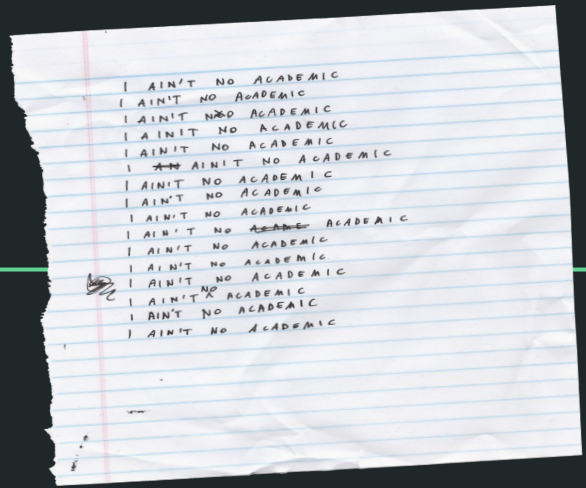 I AIN'T NO ACADEMIC
I AIN'T NO ACADEMIC
I AIN'T NO ACADEMIC
I AIN'T NO ACADEMIC
I AIN'T NO ACADEMIC
I AN AIN'T NO ACADEMIC
I AIN'T NO ACADEMIC
I AIN'T NO ACADEMIC
I AIN'T NO ACADEMIC
I AIN'T NO ACADME ACADEMIC
I AIN'T NO ACADEMIC
I AIN'T NO ACADEMIC
I AIN'T NO ACADEMIC
I AIN'T NO ACADEMIC
I AIN'T NO ACADEMIC
I AIN'T NO ACADEMIC